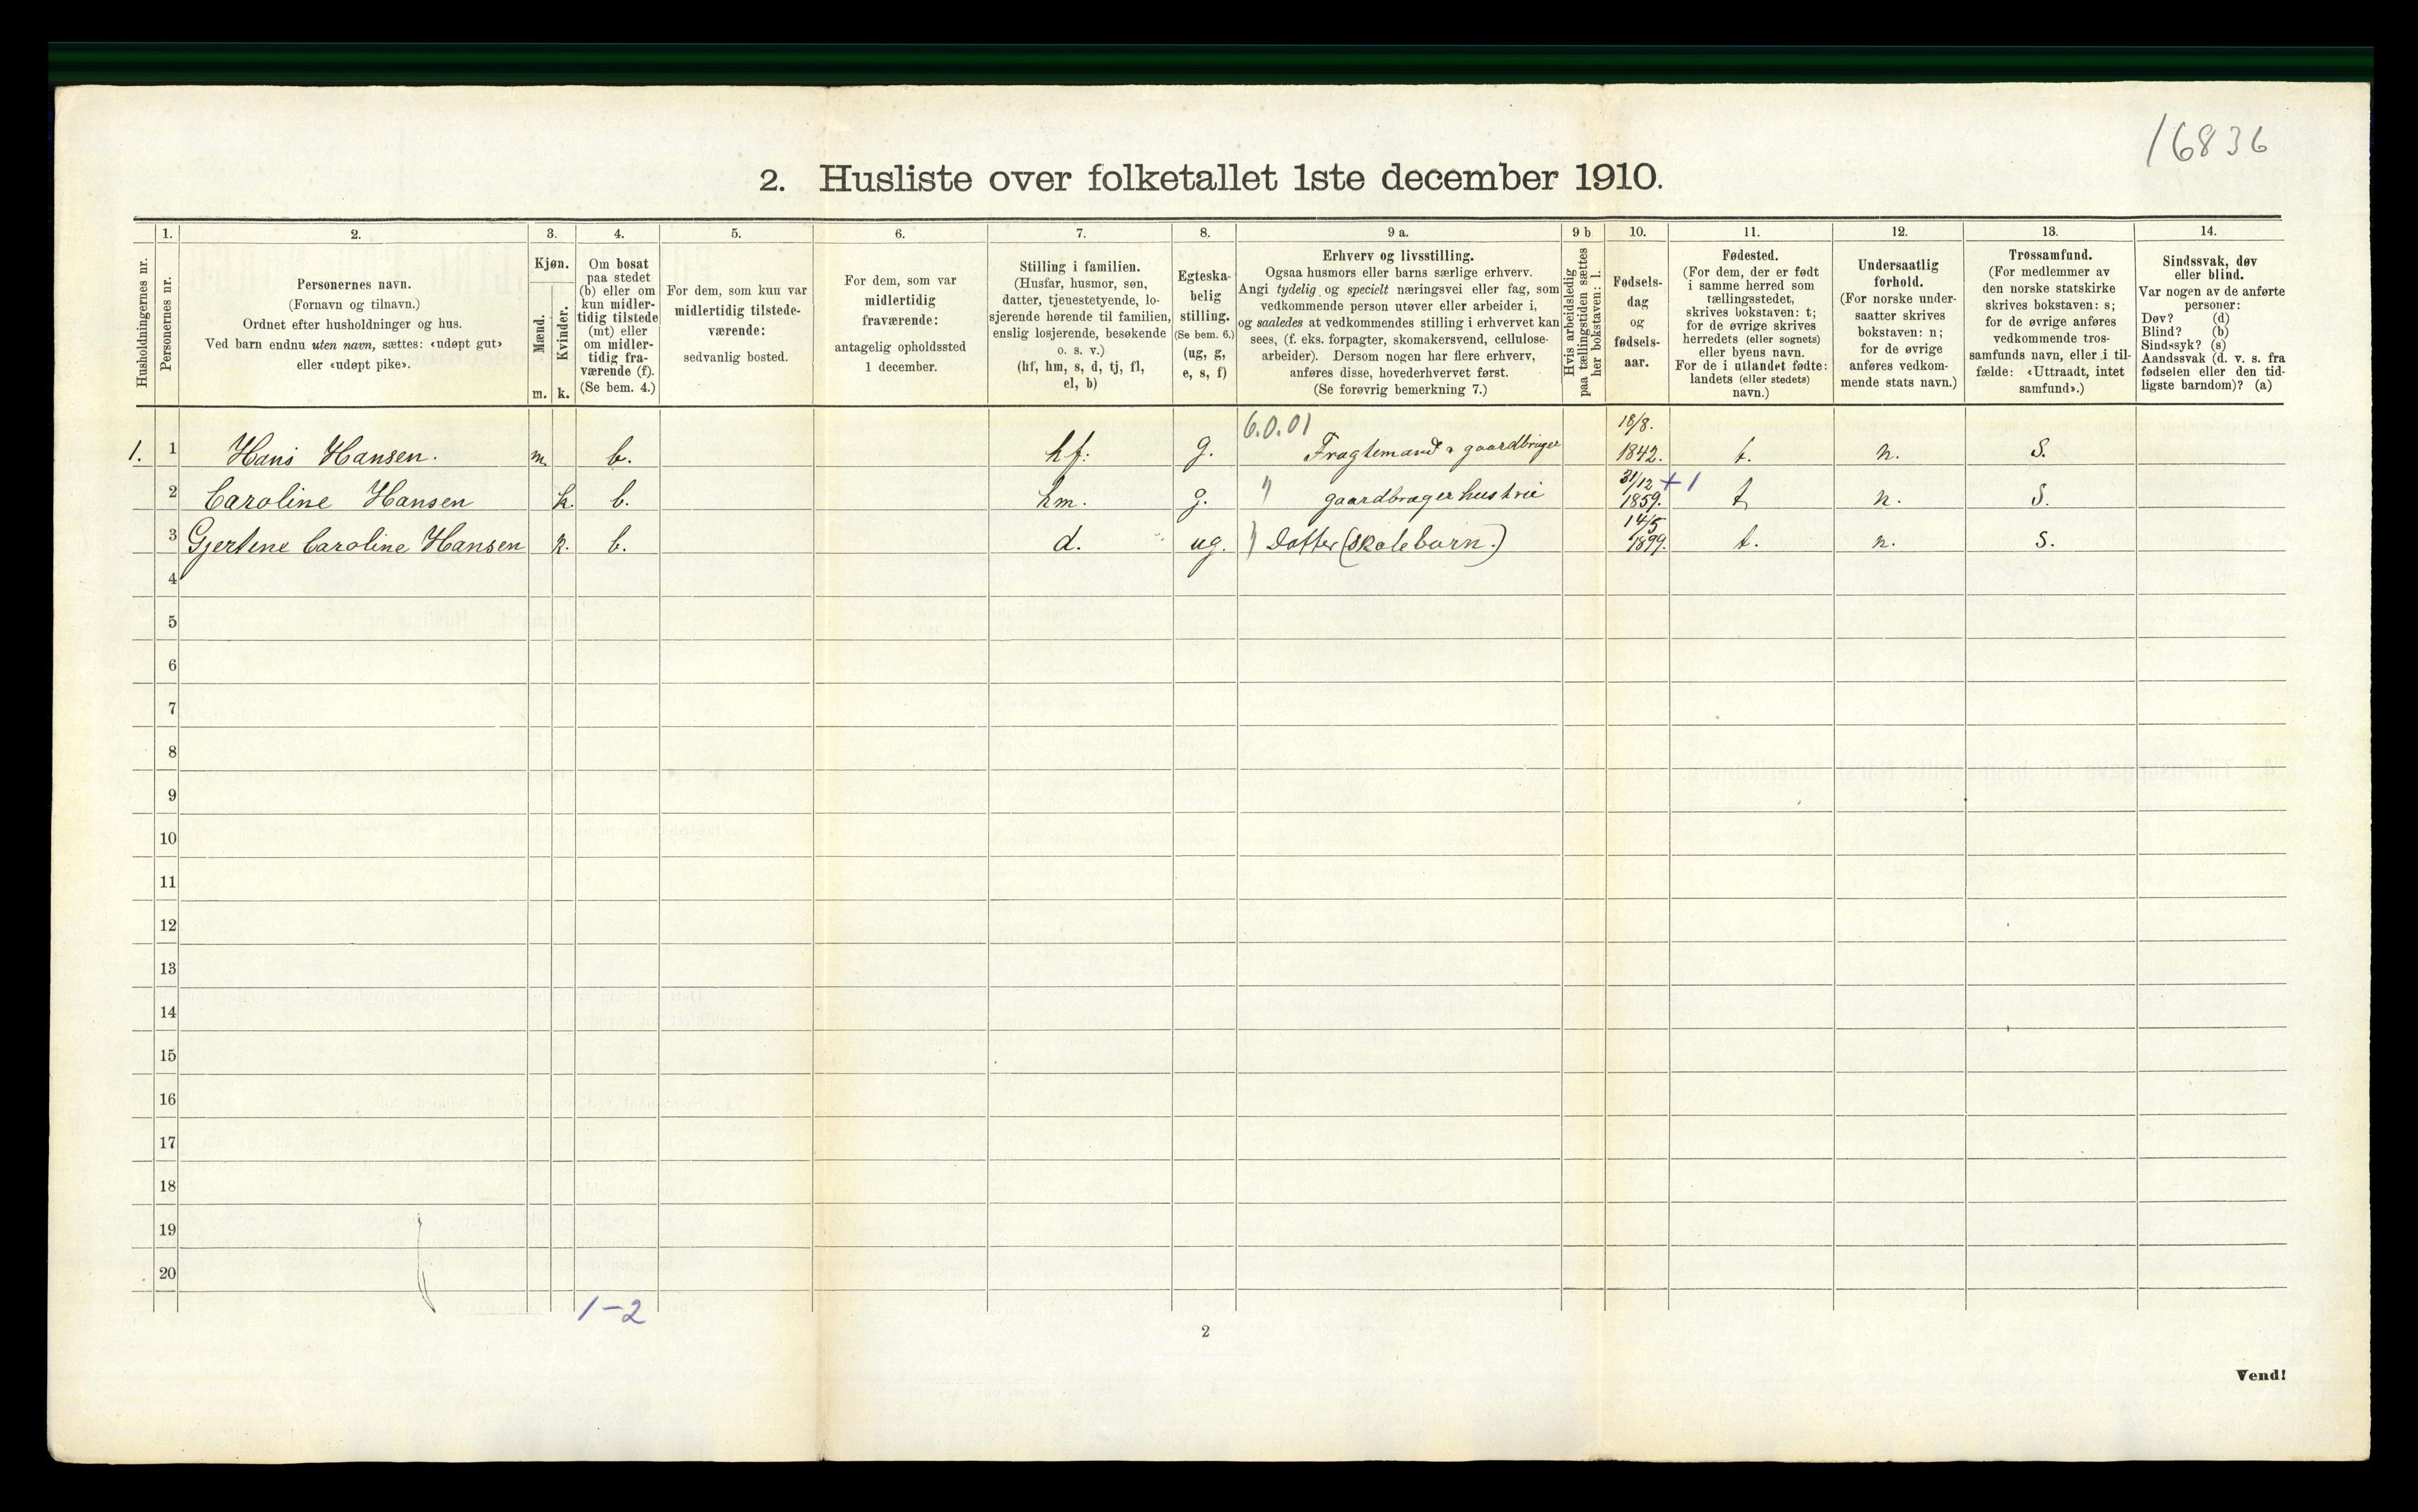 16836
2. Husliste over folketallet 1ste december 1910.
Husholdningernes nr.
1.
Personernes nr.
2.
Personernes navn.
(Fornavn og tilnavn.)
Ordnet efter husholdninger og hus.
Ved barn endnu uten navn, sættes: «udøpt gut»
eller «udøpt pike».
3.
Kjøn.
Mænd.
Kvinder.
m. k.
4.
Om bosat
paa stedet
(b) eller om
kun midler-
tidig tilstede
(mt) eller
om midler-
tidig fra-
værende (f).
(Se bem. 4.)
5.
For dem, som kun var
midlertidig tilstede-
værende:
sedvanlig bosted.
6.
For dem, som var
midlertidig
fraværende:
antagelig opholdssted
1 december.
7.
Stilling i familien.
(Husfar, husmor, søn,
datter, tjenestetyende, lo-
sjerende hørende til familien,
enslig losjerende, besøkende
o. s. v.)
(hf, hm, s, d, tj, fl,
el, b)
8.
Egteska-
belig
stilling.
(Se bem. 6.)
(ug, g,
e, s, f)
9 a.
Erhverv og livsstilling.
Ogsaa husmors eller barns særlige erhverv.
Angi tydelig og specielt næringsvei eller fag, som
vedkommende person utøver eller arbeider i,
og saaledes at vedkommendes stilling i erhvervet kan
sees, (f. eks. forpagter, skomakersvend, cellulose-
arbeider). Dersom nogen har flere erhverv,
anføres disse, hovederhvervet først.
(Se forøvrig bemerkning 7.)
9 b
Hvis arbeidsledig
paa tællingstiden sættes
her bokstaven: l.
10.
Fødsels-
dag
og
fødsels-
aar.
11.
Fødested.
(For dem, der er født
i samme herred som
tællingsstedet,
skrives bokstaven: t;
for de øvrige skrives
herredets (eller sognets)
eller byens navn.
For de i utlandet fødte:
landets (eller stedets)
navn.)
12.
Undersaatlig
forhold.
(For norske under-
saatter skrives
bokstaven: n;
for de øvrige
anføres vedkom-
mende stats navn.)
13.
Trossamfund.
(For medlemmer av
den norske statskirke
skrives bokstaven: s;
for de øvrige anføres
vedkommende tros-
samfunds navn, eller i til-
fælde: «Uttraadt, intet
samfund».)
14.
Sindssvak, døv
eller blind.
Var nogen av de anførte
personer:
Døv? (d)
Blind? (b)
Sindssyk? (s)
Aandssvak (d. v. s. fra
fødselen eller den tid-
ligste barndom)? (a)
6.0.01 18/8.
1. 1 Hans Hansen. m. b. hf: g. Fragtemand & gaardbruger 1842. t. n. S.
31/12 + 1
2 Caroline Hansen k. b. hm. g. " gaardbruger hustrue 1859. t n. S.
14/5
3 Gjertine Caroline Hansen k. b. d. ug. " Datter (skolebarn.) 1899. t. n. S.
4
5
6
7
8
9
10
11
12
13
14
15
16
17
18
19
20
1-2
2
Vend!